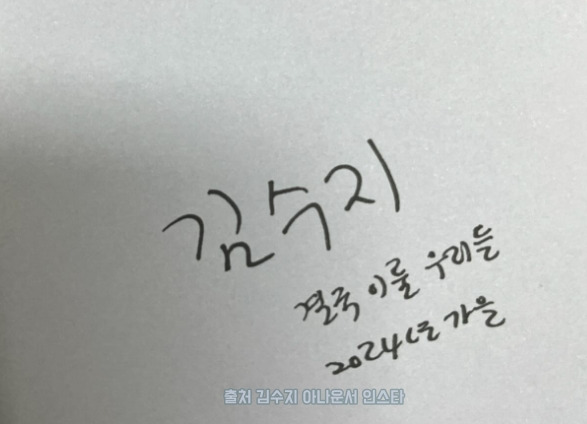 김수지
결국 이룰 우리들
2024년 가을
출처 김수지 아나운서 인스타